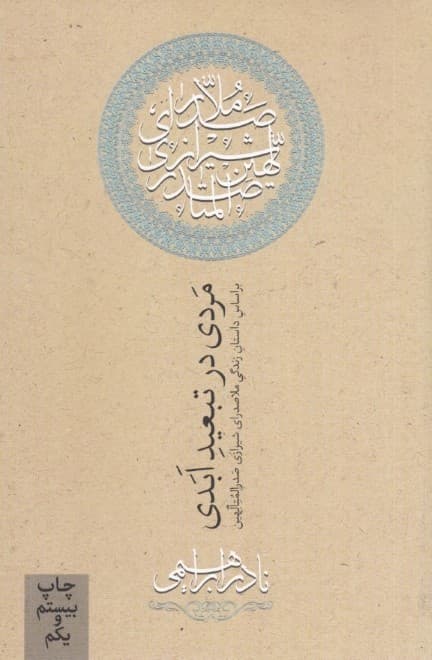 ملاصدرای
شیرازی
صدر المتالهین
مَردی در تبعیدِ اَبَدی
براساسِ داستانِ زندگیِ ملاصدرای شیرازی صَدرالمُتِالِّهین
نادر ابراهیمی
چاپ
بیستم
و
یکم